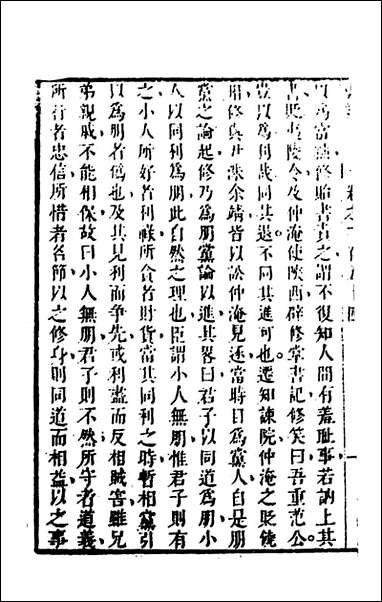 以為當黜修貽書責之謂不復知人間有羞耻事若訥上其
書貶夷陵令及仲淹使陝西辟修掌書記修笑曰吾重范公
豈以為利哉同其退不同其進可也遷知諫院仲淹之貶饒
州修與尹洙余靖皆以訟仲淹見逐當時目為黨人自是朋
黨之論起修乃為朋黨論以進其畧曰君子以同道為朋小
人以同利為朋此自然之理也臣謂小人無朋惟君子則有
之小人所好者利祿所貪者財貨當其同利之時暫相黨引
以為朋者偽也及其見利而爭先或利盡而反相賊害雖兄
弟親戚不能相保故曰小人無朋君子則不然所守者道義
所行者忠信所惜者名節以之修身則同道而相益以之事